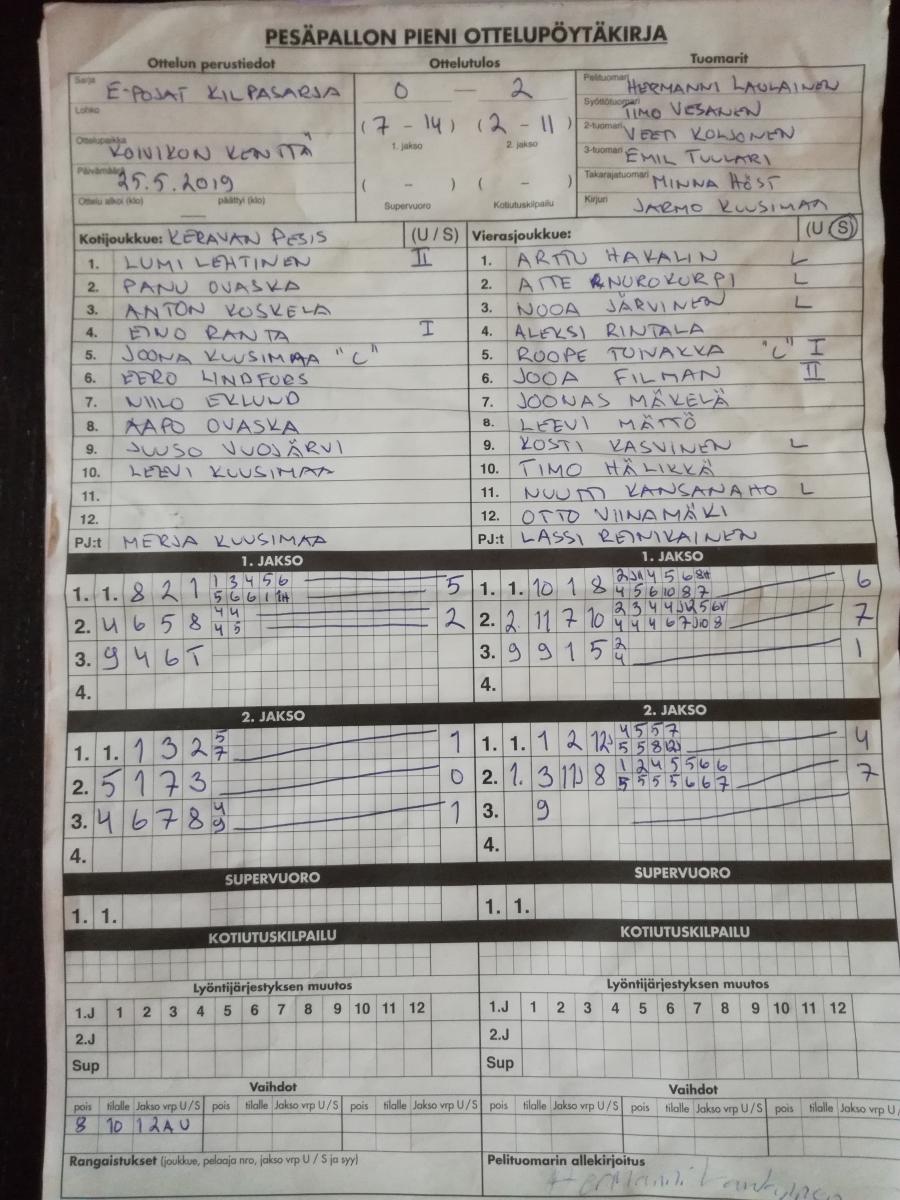 PESÄPALLON PIENI OTTELUPÖYTÄKIRJA
Ottelun perustiedot Ottelutulos Tuomarit
Sarja E-POJAT KILPASARJA
Lohko
Ottelupaikka KOIVIKON KENTTÄ
Päivämäärä 25.5.2019
Ottelu alkoi (klo) päättyi (klo)
0 — 2
(7 - 14) (2 - 11)
1. jakso 2. jakso
( - ) ( - )
Supervuoro Kotiutuskilpailu
Pelituomari HERMANNI LAULAINEN
Syöttötuomari TIMO VESANEN
2-tuomari VEETI KOLJONEN
3-tuomari EMIL TUULARI
Takarajatuomari MINNA HÖST
Kirjuri JARMO KUUSIMAA
Kotijoukkue: KERAVAN PESIS (U / S)
1. LUMI LEHTINEN II
2. PANU OVASKA
3. ANTON KOSKELA
4. EINO RANTA I
5. JOONA KUUSIMAA "C"
6. EERO LINDFORS
7. NIILO EKLUND
8. AAPO OVASKA
9. JUUSO VUOJÄRVI
10. LEEVI KUUSIMAA
11.
12.
PJ:t MERJA KUUSIMAA
Vierasjoukkue: (U / S)
1. ARTTU HAKALIN L
2. ATTE NUROKORPI L
3. NOOA JÄRVINEN L
4. ALEKSI RINTALA
5. ROOPE TOIVAKKA "C" I
6. JOOA FILMAN II
7. JOONAS MÄKELÄ
8. LEEVI MÄTTÖ
9. KOSTI KASVINEN L
10. TIMO HÄLIKKÄ
11. NUUTTI KANSANAHO L
12. OTTO VIINAMÄKI
PJ:t LASSI REINIKAINEN
1. JAKSO
1. 1. 8 2 1 1 3 4 5 6 5
5 6 6 1
2. 4 6 5 8 4 4 2
4 5
3. 9 4 6 T
4.
2. JAKSO
1. 1. 1 3 2 5 1
7
2. 5 1 7 3 0
3. 4 6 7 8 4 1
9
4.
SUPERVUORO
1. 1.
KOTIUTUSKILPAILU
1. JAKSO
1. 1. 10 1 8 2 4 5 6 6
4 5 6 10 8 7
2. 2. 11 7 10 2 3 4 4 5 7
4 4 4 6 7 8
3. 9 9 1 5 2 1
4
4.
2. JAKSO
1. 1. 1 2 12 4 5 5 7 4
5 5 8 12
2. 1. 3 11 8 1 2 4 5 5 6 6 7
5 5 5 5 6 6 7
3. 9
4.
SUPERVUORO
1. 1.
KOTIUTUSKILPAILU
Lyöntijärjestyksen muutos
1.J 1 2 3 4 5 6 7 8 9 10 11 12
2.J
Sup
Lyöntijärjestyksen muutos
1.J 1 2 3 4 5 6 7 8 9 10 11 12
2.J
Sup
Vaihdot
pois tilalle Jakso vrp U / S pois tilalle Jakso vrp U / S pois tilalle Jakso vrp U / S
8 10 1 2A U
Vaihdot
pois tilalle Jakso vrp U / S pois tilalle Jakso vrp U / S pois tilalle Jakso vrp U /
Rangaistukset (joukkue, pelaaja nro, jakso vrp U / S ja syy)
Pelituomarin allekirjoitus